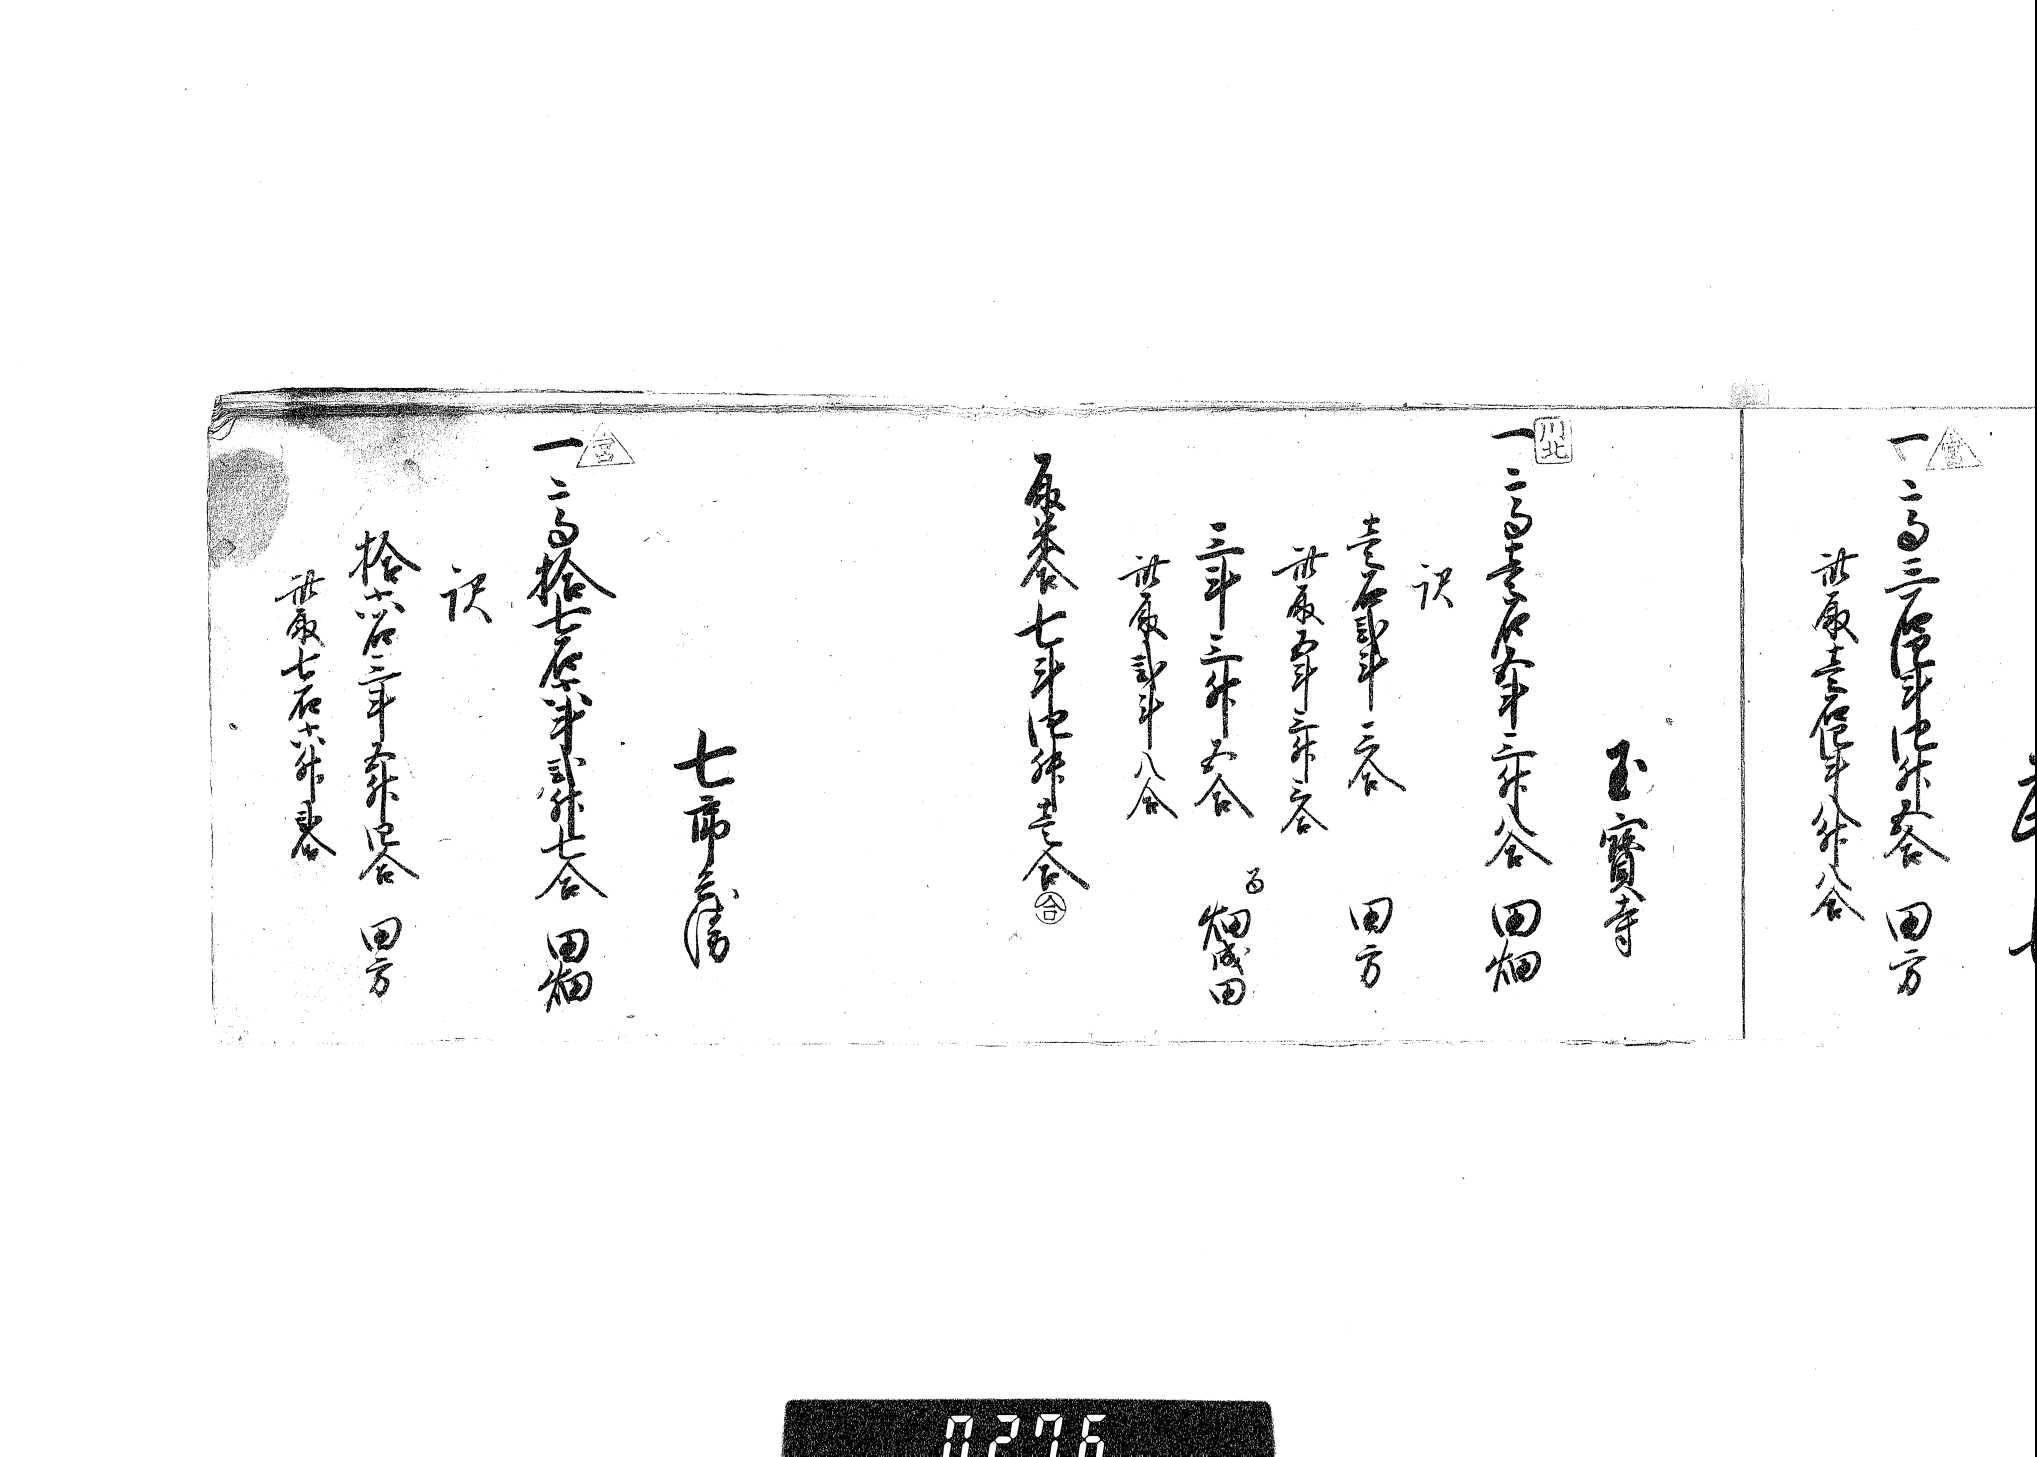 一 高三石四斗四升五合 田方
此取壱石四斗八升八合
玉寳寺
川北
一 高壱石五斗三升八合 田畑
訳
壱石弐斗三合 田方
此取五斗三升三合
三斗三升五合 畑成田
此取弐斗八合
取米合七斗四升壱合
合
七郎兵衛
宮
一 高拾七石六斗弐升七合 田畑
訳
拾六石三斗五升四合 田方
此取七石六升弐合
0276